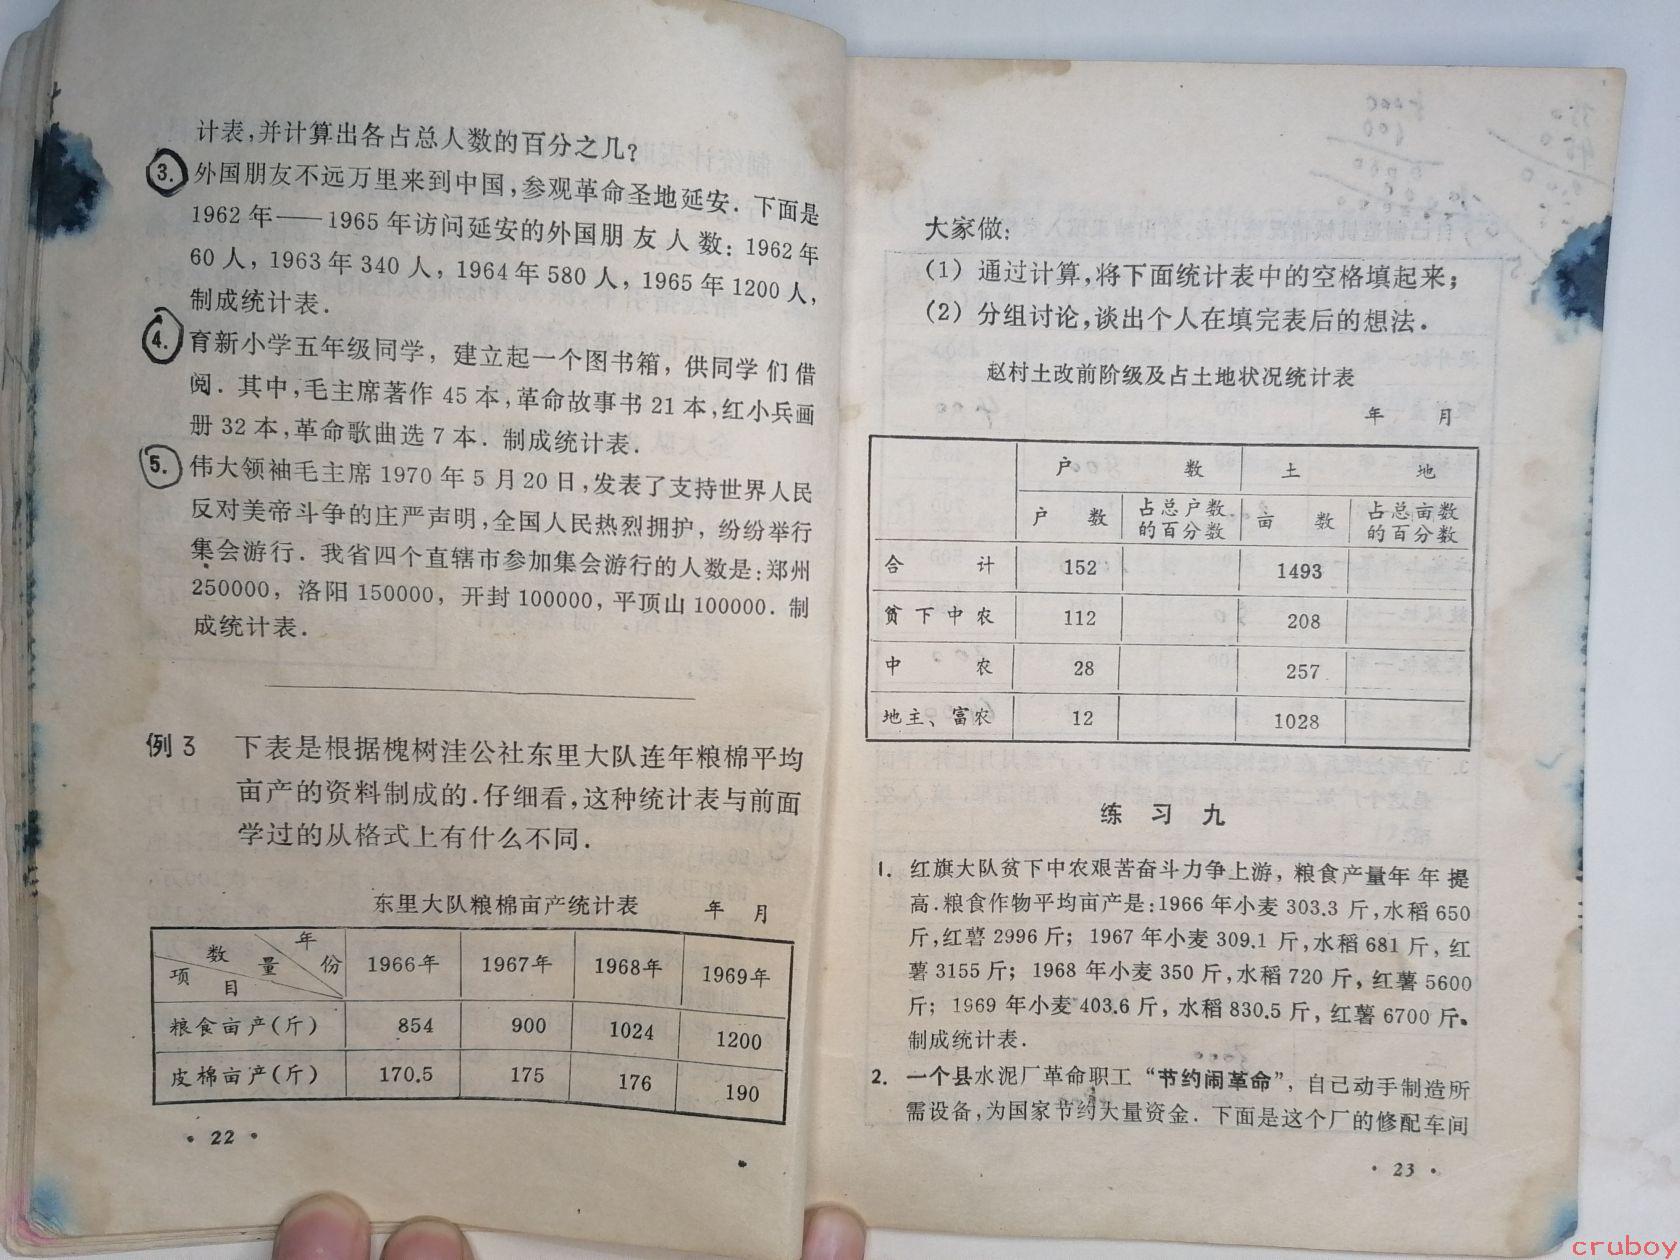 计表,并计算出各占总人数的百分之几?
3. 外国朋友不远万里来到中国,参观革命圣地延安. 下面是
1962年——1965年访问延安的外国朋友人数: 1962年
60人, 1963年340人, 1964年580人, 1965年1200人,
制成统计表.
4. 育新小学五年级同学, 建立起一个图书箱, 供同学们借
阅. 其中,毛主席著作45本,革命故事书21本,红小兵画
册32本,革命歌曲选7本. 制成统计表.
5. 伟大领袖毛主席1970年5月20日,发表了支持世界人民
反对美帝斗争的庄严声明,全国人民热烈拥护, 纷纷举行
集会游行. 我省四个直辖市参加集会游行的人数是:郑州
250000, 洛阳150000, 开封100000, 平顶山100000. 制
成统计表.
例3 下表是根据槐树洼公社东里大队连年粮棉平均
亩产的资料制成的.仔细看,这种统计表与前面
学过的从格式上有什么不同.
东里大队粮棉亩产统计表 年 月
数量 年份 项目 1966年 1967年 1968年 1969年
粮食亩产(斤) 854 900 1024 1200
皮棉亩产(斤) 170.5 175 176 190
· 22 ·
大家做:
(1) 通过计算,将下面统计表中的空格填起来;
(2) 分组讨论,谈出个人在填完表后的想法.
赵村土改前阶级及占土地状况统计表
年 月
户数 土地
户数 占总户数的百分数 亩数 占总亩数的百分数
合计 152 1493
贫下中农 112 208
中农 28 257
地主、富农 12 1028
练习九
1. 红旗大队贫下中农艰苦奋斗力争上游, 粮食产量年年提
高.粮食作物平均亩产是:1966年小麦303.3斤,水稻650
斤,红薯2996斤; 1967年小麦309.1斤,水稻681斤, 红
薯3155斤; 1968年小麦350斤,水稻720斤, 红薯5600
斤; 1969年小麦403.6斤, 水稻830.5斤, 红薯6700斤.
制成统计表.
2. 一个县水泥厂革命职工“节约闹革命”, 自己动手制造所
需设备,为国家节约大量资金. 下面是这个厂的修配车间
· 23 ·
cruboy